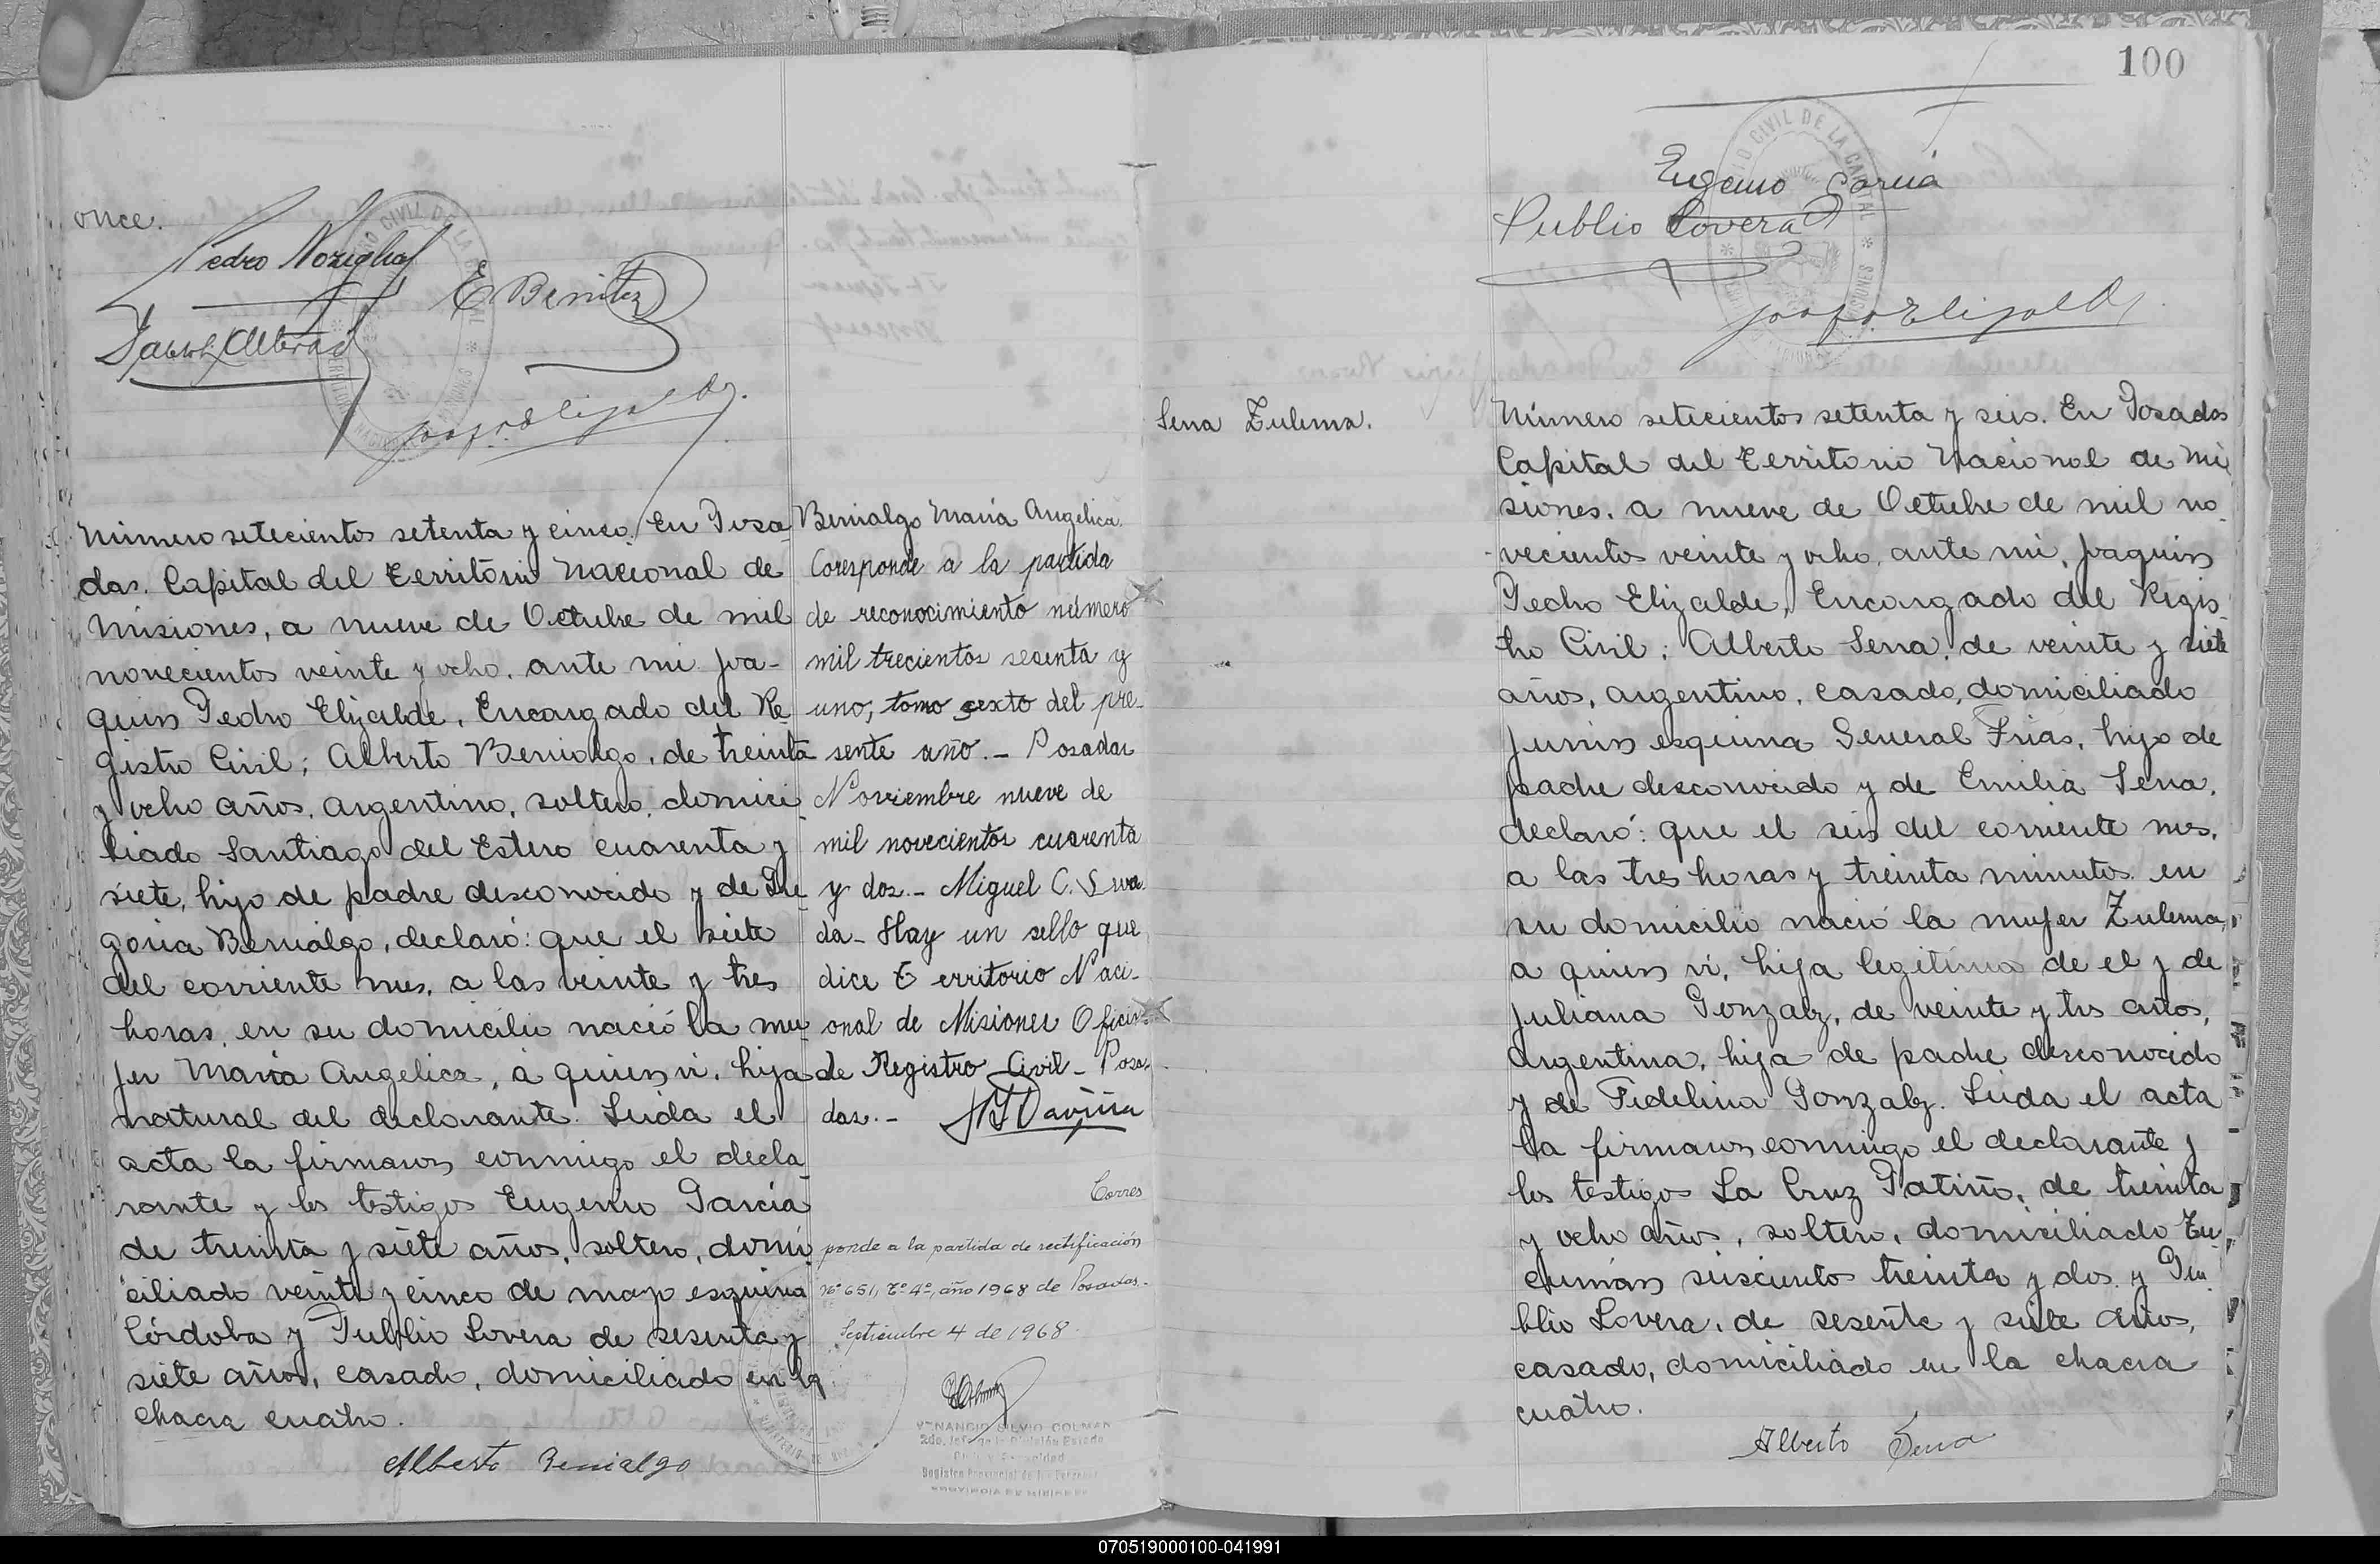 once.
Pedro Noziglia
E Benitez
Número setecientos setenta y cinco. En Posa
das. Capital del Territorio Nacional de
Misiones, a nueve de Octubre de mil
novecientos veinte y ocho. ante mi Joa-
quin Pedro Elizalde, Encargado del Re
gistro Civil; Alberto Bernialgo, de treinta
y ocho años, argentino, soltero, domici
liado Santiago del Estero cuarenta y
siete, hijo de padre desconocido y de Gre
goria Bernialgo, declaró: que el siete
del corriente mes, a las veinte y tres
horas, en su domicilio nació la mu
jer María Angelica, á quien vi, hija
natural del declarante. Leida el
acta la firmaron conmigo el decla
rante y los testigos Eugenio Garcia
de treinta y siete años, soltero, domi
ciliado veinte y cinco de mayo esquina
Córdoba y Publio Lovera de sesenta y
siete años, casado, domiciliado en la
chacra cuatro.
Alberto Bernialgo
Bernialgo María Angélica.
Coresponde a la partida
de reconocimiento número
mil trecientos sesenta y
uno, tomo sexto del pre-
sente año.- Posadas
Noviembre nueve de
mil novecientos cuarenta
y dos.- Miguel C.
da- Hay un sello que
dice Territorio Naci-
onal de Misiones Oficina
de Registro Civil- Posa.
das.-
Corres
ponde a la partida de rectificación
nº 651, Tº 4º, año 1968 de Posadas.-
Septiembre 4 de 1968.
VENANCIO SILVIO COLMAN
PROVINCIA DE MISIONES
100
Eugenio Garcia
Publio Lovera
Sena Zulema.
Número setecientos setenta y seis. En Posadas
Capital del Territorio Nacional de Mi
siones, a nueve de Octubre de mil no
vecientos veinte y ocho, ante mi, Joaquin
Pedro Elizalde, Encargado del Regis
tro Civil; Alberto Sena, de veinte y siete
años, argentino, casado, domiciliado
Junin esquina General Frias, hijo de
padre desconocido y de Emilia Sena,
declaró: que el seis del corriente mes,
a las tres horas y treinta minutos en
su domicilio nació la mujer Zulema,
a quien vi, hija legítima de el y de
Juliana Gonzalez, de veinte y tres años,
argentina, hija de padre desconocido
y de Fidelina Gonzalez. Leida el acta
la firmaron conmigo el declarante y
los testigos La Cruz Patiño, de treinta
y ocho años, soltero, domiciliado Tu
cumán seiscientos treinta y dos y Pu
blio Lovera, de sesenta y siete años,
casado, domiciliado en la chacra
cuatro.
Alberto Sena
070519000100-041991